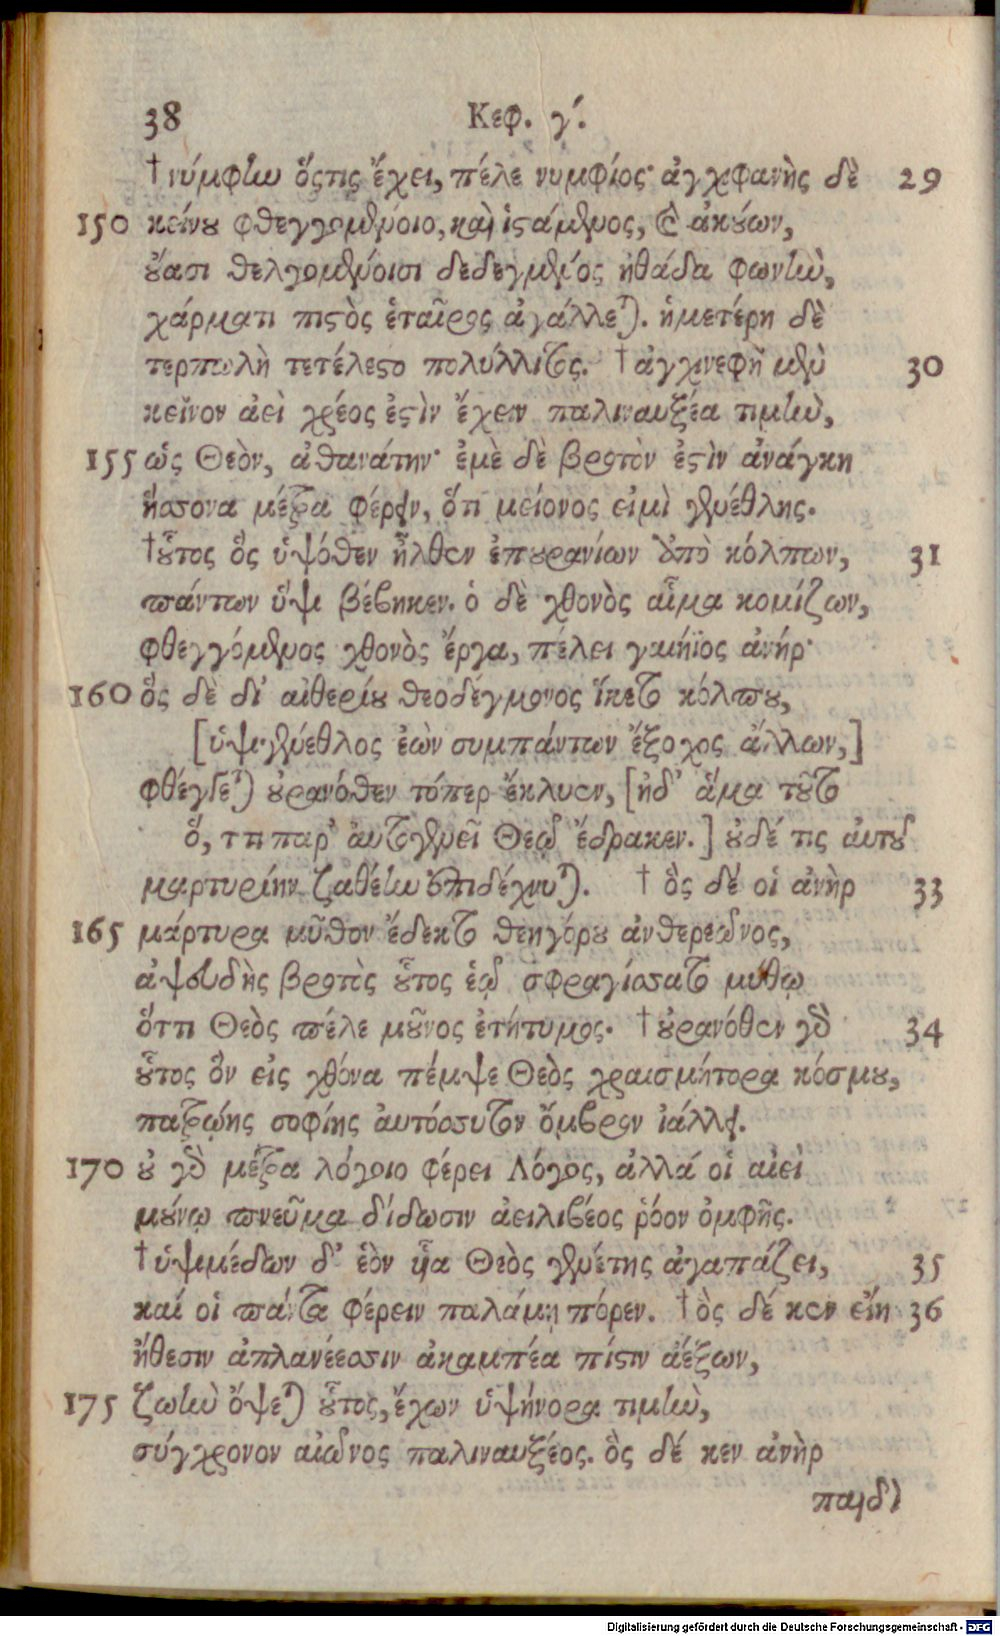 38 Κεφ. γʹ.
† νύμφην ὅςτις ἔχει, πέλε νυμφίος· ἀγχιφανὴς δὲ 29
150 κείνου φθεγγομένοιο, καὶ ἱςάμενος, καὶ ἀκούων,
οὔασι θελγομένοισι δεδεγμένος ἠθάδα φωνὴν,
χάρματι πιςὸς ἑταῖρος ἀγάλλεται. ἡμετέρη δὲ
τερπωλὴ τετέλεςο πολύλλιτος. † ἀγχινεφῆ μὲν 30
κεῖνον ἀεὶ χρέος ἐςὶν ἔχειν παλιναυξέα τιμὴν,
155 ὡς Θεὸν, ἀθανάτην· ἐμὲ δὲ βροτὸν ἐςὶν ἀνάγκη
ἥσσονα μέτρα φέρειν, ὅτι μείονος εἰμὶ γενέθλης.
† οὗτος ὃς ὑψόθεν ἦλθεν ἐπουρανίων ἀπὸ κόλπων, 31
πάντων ὕψι βέβηκεν. ὁ δὲ χθονὸς αἷμα κομίζων,
φθεγγόμενος χθονὸς ἔργα, πέλει γαιήϊος ἀνήρ·
160 ὃς δὲ δι' αἰθερίου θεοδέγμονος ἵκετο κόλπου,
[ὑψιγένεθλος ἐὼν συμπάντων ἔξοχος ἄλλων,]
φθέγγεται οὐρανόθεν τόπερ ἔκλυεν, [ἠδ' ἅμα τοῦτο
ὅ, τι παρ' αὐτογενεῖ Θεῷ ἔδρακεν.] οὐδέ τις αὐτοῦ
μαρτυρίην ζαθέην ἐπιδέχνυται. † ὃς δέ οἱ ἀνὴρ 33
165 μάρτυρα μῦθον ἔδεκτο θεηγόρου ἀνθερεῶνος,
ἀψευδὴς βροτὸς οὗτος ἑῷ σφραγίσσατο μύθῳ
ὅττι Θεὸς πέλε μοῦνος ἐτήτυμος. † οὐρανόθεν γὰρ 34
οὗτος ὃν εἰς χθόνα πέμψε Θεὸς χραισμήτορα κόσμου,
πατρῴης σοφίης αὐτόσσυτον ὄμβρον ἰάλλει.
170 οὐ γὰρ μέτρα λόγοιο φέρει Λόγος, ἀλλά οἱ αἰεὶ
μούνῳ πνεῦμα δίδωσιν ἀειλιβέος ῥόον ὀμφῆς.
† ὑψιμέδων δ' ἑὸν υἷα Θεὸς γενέτης ἀγαπάζει, 35
καί οἱ πάντα φέρειν παλάμῃ πόρεν. † ὃς δέ κεν εἴη 36
ἤθεσιν ἀπλανέεσσιν ἀκαμπέα πίςιν ἀέξων,
175 ζωὴν ὄψεται οὗτος, ἔχων ὑψήνορα τιμὴν,
σύγχρονον αἰῶνος παλιναυξέος. ὃς δέ κεν ἀνὴρ
παιδὶ
Digitalisierung gefördert durch die Deutsche Forschungsgemeinschaft - DFG